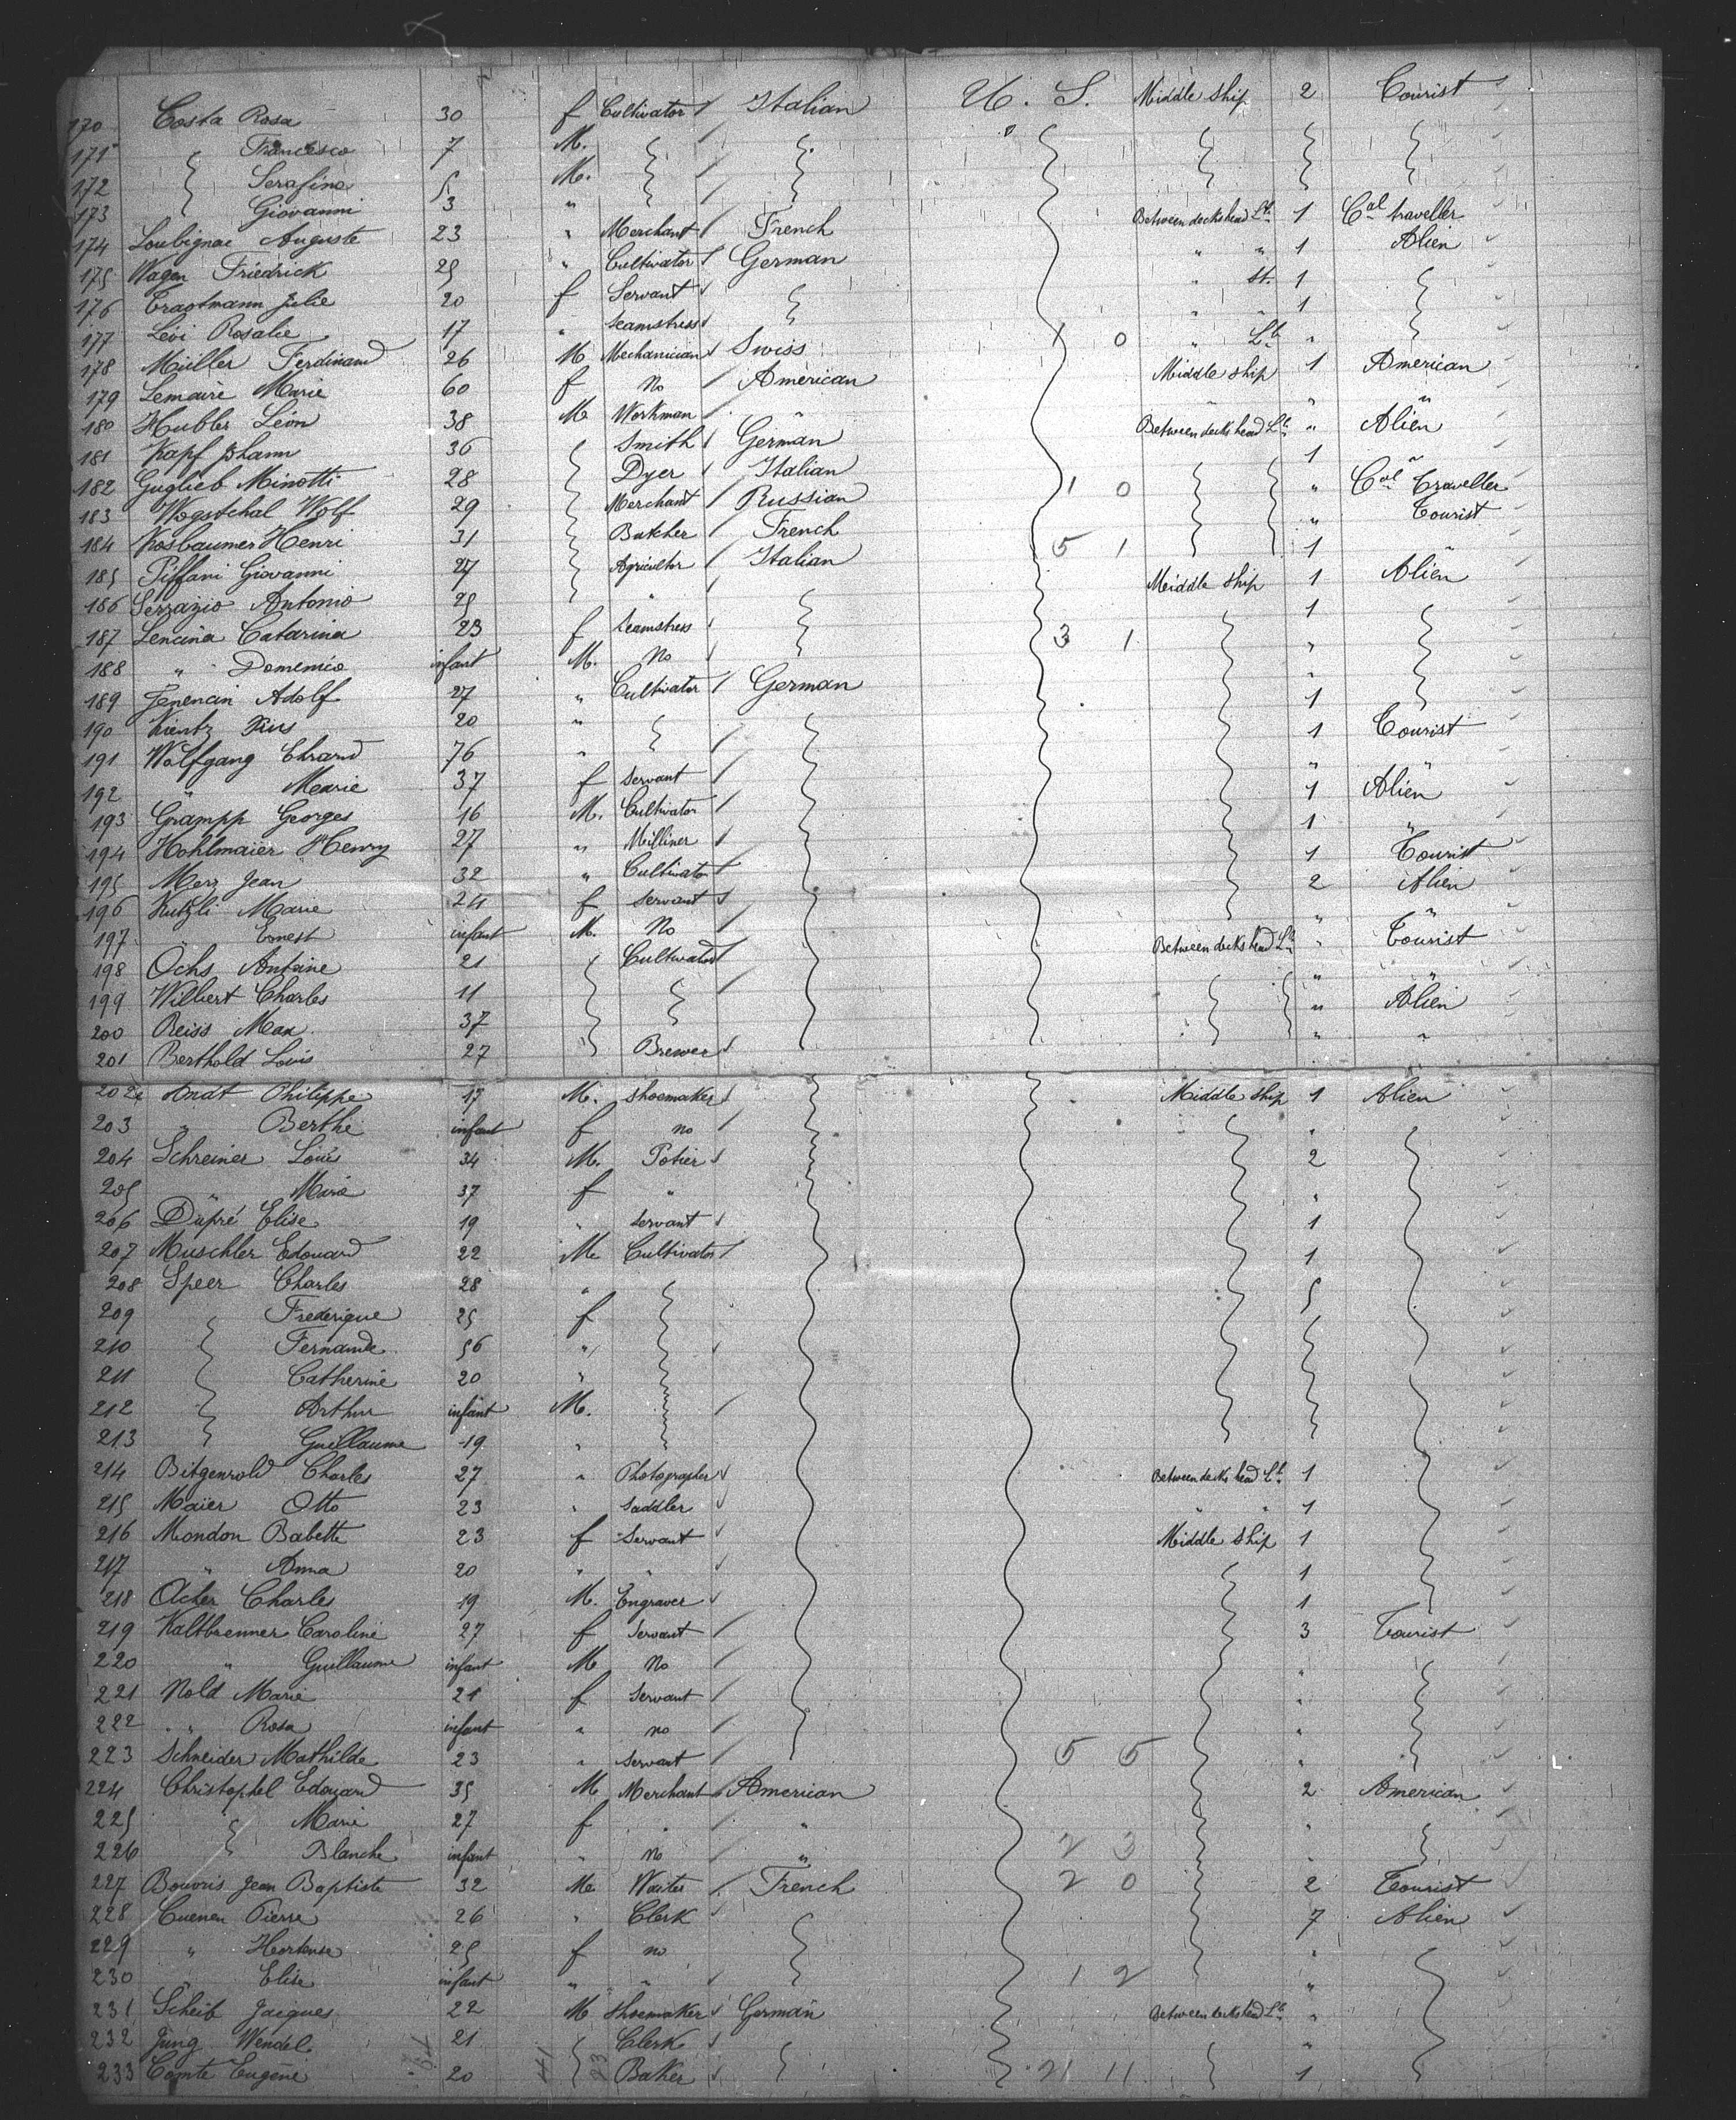 170 Costa Rosa 30 f Cultivator Italian U. S. Middle Ship 2 Tourist
171 " Francesco 7 M.
172 Serafino 5 M.
173 Giovanni 3 "
174 Loubignac Auguste 23 " Merchant French Between decks head Lt. 1 Cal traveller
175 Wagen Friedrick 25 " Cultivator German " " 1 Alien
176 Trautmann Julie 20 f Servant " St. 1
177 Lévi Rosalie 17 " Seamstress " " 1
178 Müller Ferdinand 26 M Mechanician Swiss 1 0 " Lt. "
179 Lemaire Marie 60 f No American Middle Ship 1 American
180 Hubler Léon 38 M Workman " " " "
181 Kapf Johann 36 Smith German Between decks head Lt. " Alien
182 Guglieb Minotti 28 Dyer Italian 1 "
183 Wogstchal Wolf 29 Merchant Russian 1 0 " Cal Traveller
184 Rosbaumer Henri 31 Butcher French " Tourist
185 Piffani Giovanni 27 Agricultor Italian 5 1 1 "
186 Serrazio Antonio 25 " Middle Ship 1 Alien
187 Lencina Catarina 23 f Seamstress 1
188 " Domenico infant M. No 3 1 "
189 Jenencin Adolf 27 " Cultivator German "
190 Kientz Pius 20 " 1
191 Wolfgang Ehrard 76 " 1 Tourist
192 " Marie 37 f Servant " "
193 Grampp Georges 16 M. Cultivator 1 Alien
194 Hohlmaier Henry 27 " Milliner 1 "
195 Merz Jean 32 " Cultivator 1 Tourist
196 Kutzli Marie 24 f Servant 2 Alien
197 " Ernest infant M. No " "
198 Ochs Antoine 21 Cultivator Between decks head Lt. " Tourist
199 Wilbert Charles 11 " "
200 Reiss Max 37 " Alien
201 Berthold Louis 27 Brewer " "
202 Arndt Philippe 17 M. Shoemaker Middle Ship 1 Alien
203 " Berthe infant f no "
204 Schreiner Louis 34 M. Potier 2
205 " Marie 37 f " "
206 Dupré Elise 19 " Servant 1
207 Muschler Edouard 22 M Cultivator 1
208 Speer Charles 28 " 5
209 Frederique 25 f
210 Fernande 56 "
211 Catherine 20 "
212 Arthur infant M.
213 Guillaume 19 "
214 Bitgenrold Charles 27 " Photographer Between decks head Lt. 1
215 Maier Otto 23 " Saddler " " 1
216 Mondon Babette 23 f Servant Middle Ship 1
217 " Anna 20 " " 1
218 Acher Charles 19 M. Engraver 1
219 Kaltbrenner Caroline 27 f Servant 3 Tourist
220 " Guillaume infant M No "
221 Nold Marie 21 f Servant "
222 " Rosa infant " no "
223 Schneider Mathilde 23 " Servant 5 5 "
224 Christophel Edouard 35 M Merchant American 2 American
225 Marie 27 f " " "
226 Blanche infant " No " 2 3 "
227 Bouvris Jean Baptiste 32 M Waiter French 2 0 2 Tourist
228 Cuenen Pierre 26 " Clerk 7 Alien
229 " Hortense 25 f no "
230 " Elise infant " " 1 2 "
231 Scheib Jacques 22 M Shoemaker German Between decks head Lt. "
232 Jung Wendel 21 Clerk "
233 Comte Eugène 20 Baker 21 11 1